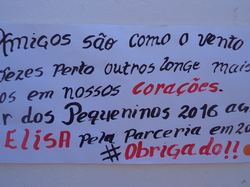 Amigos são como o vento
vezes Perto outros longe mais
os em nossos corações.
r dos Pequeninos 2016 ag
Elisa Pela Parceria em 20
#Obrigado!!